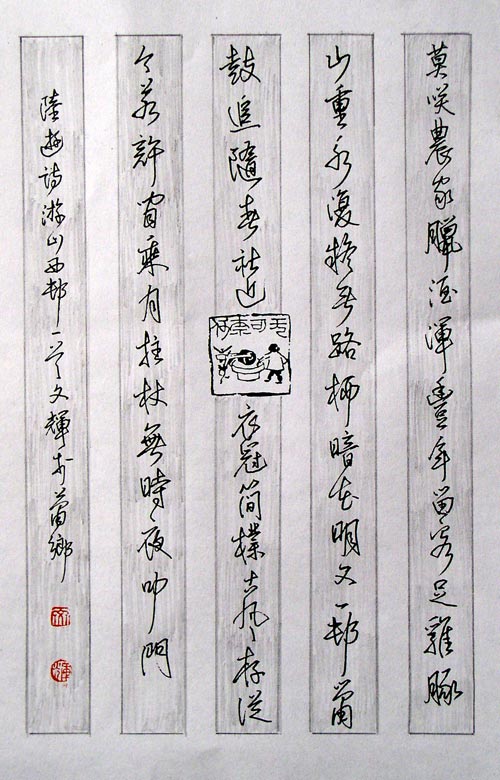 莫咲農家臘酒渾豐年留客足雞豚
山重水復疑无路柳暗花明又一邨簫
鼓追隨春社近衣冠簡樸古風存從
今若許閒乘月拄杖無時夜叩門
陸遊詩游山西邨一首文輝於鄉
輝